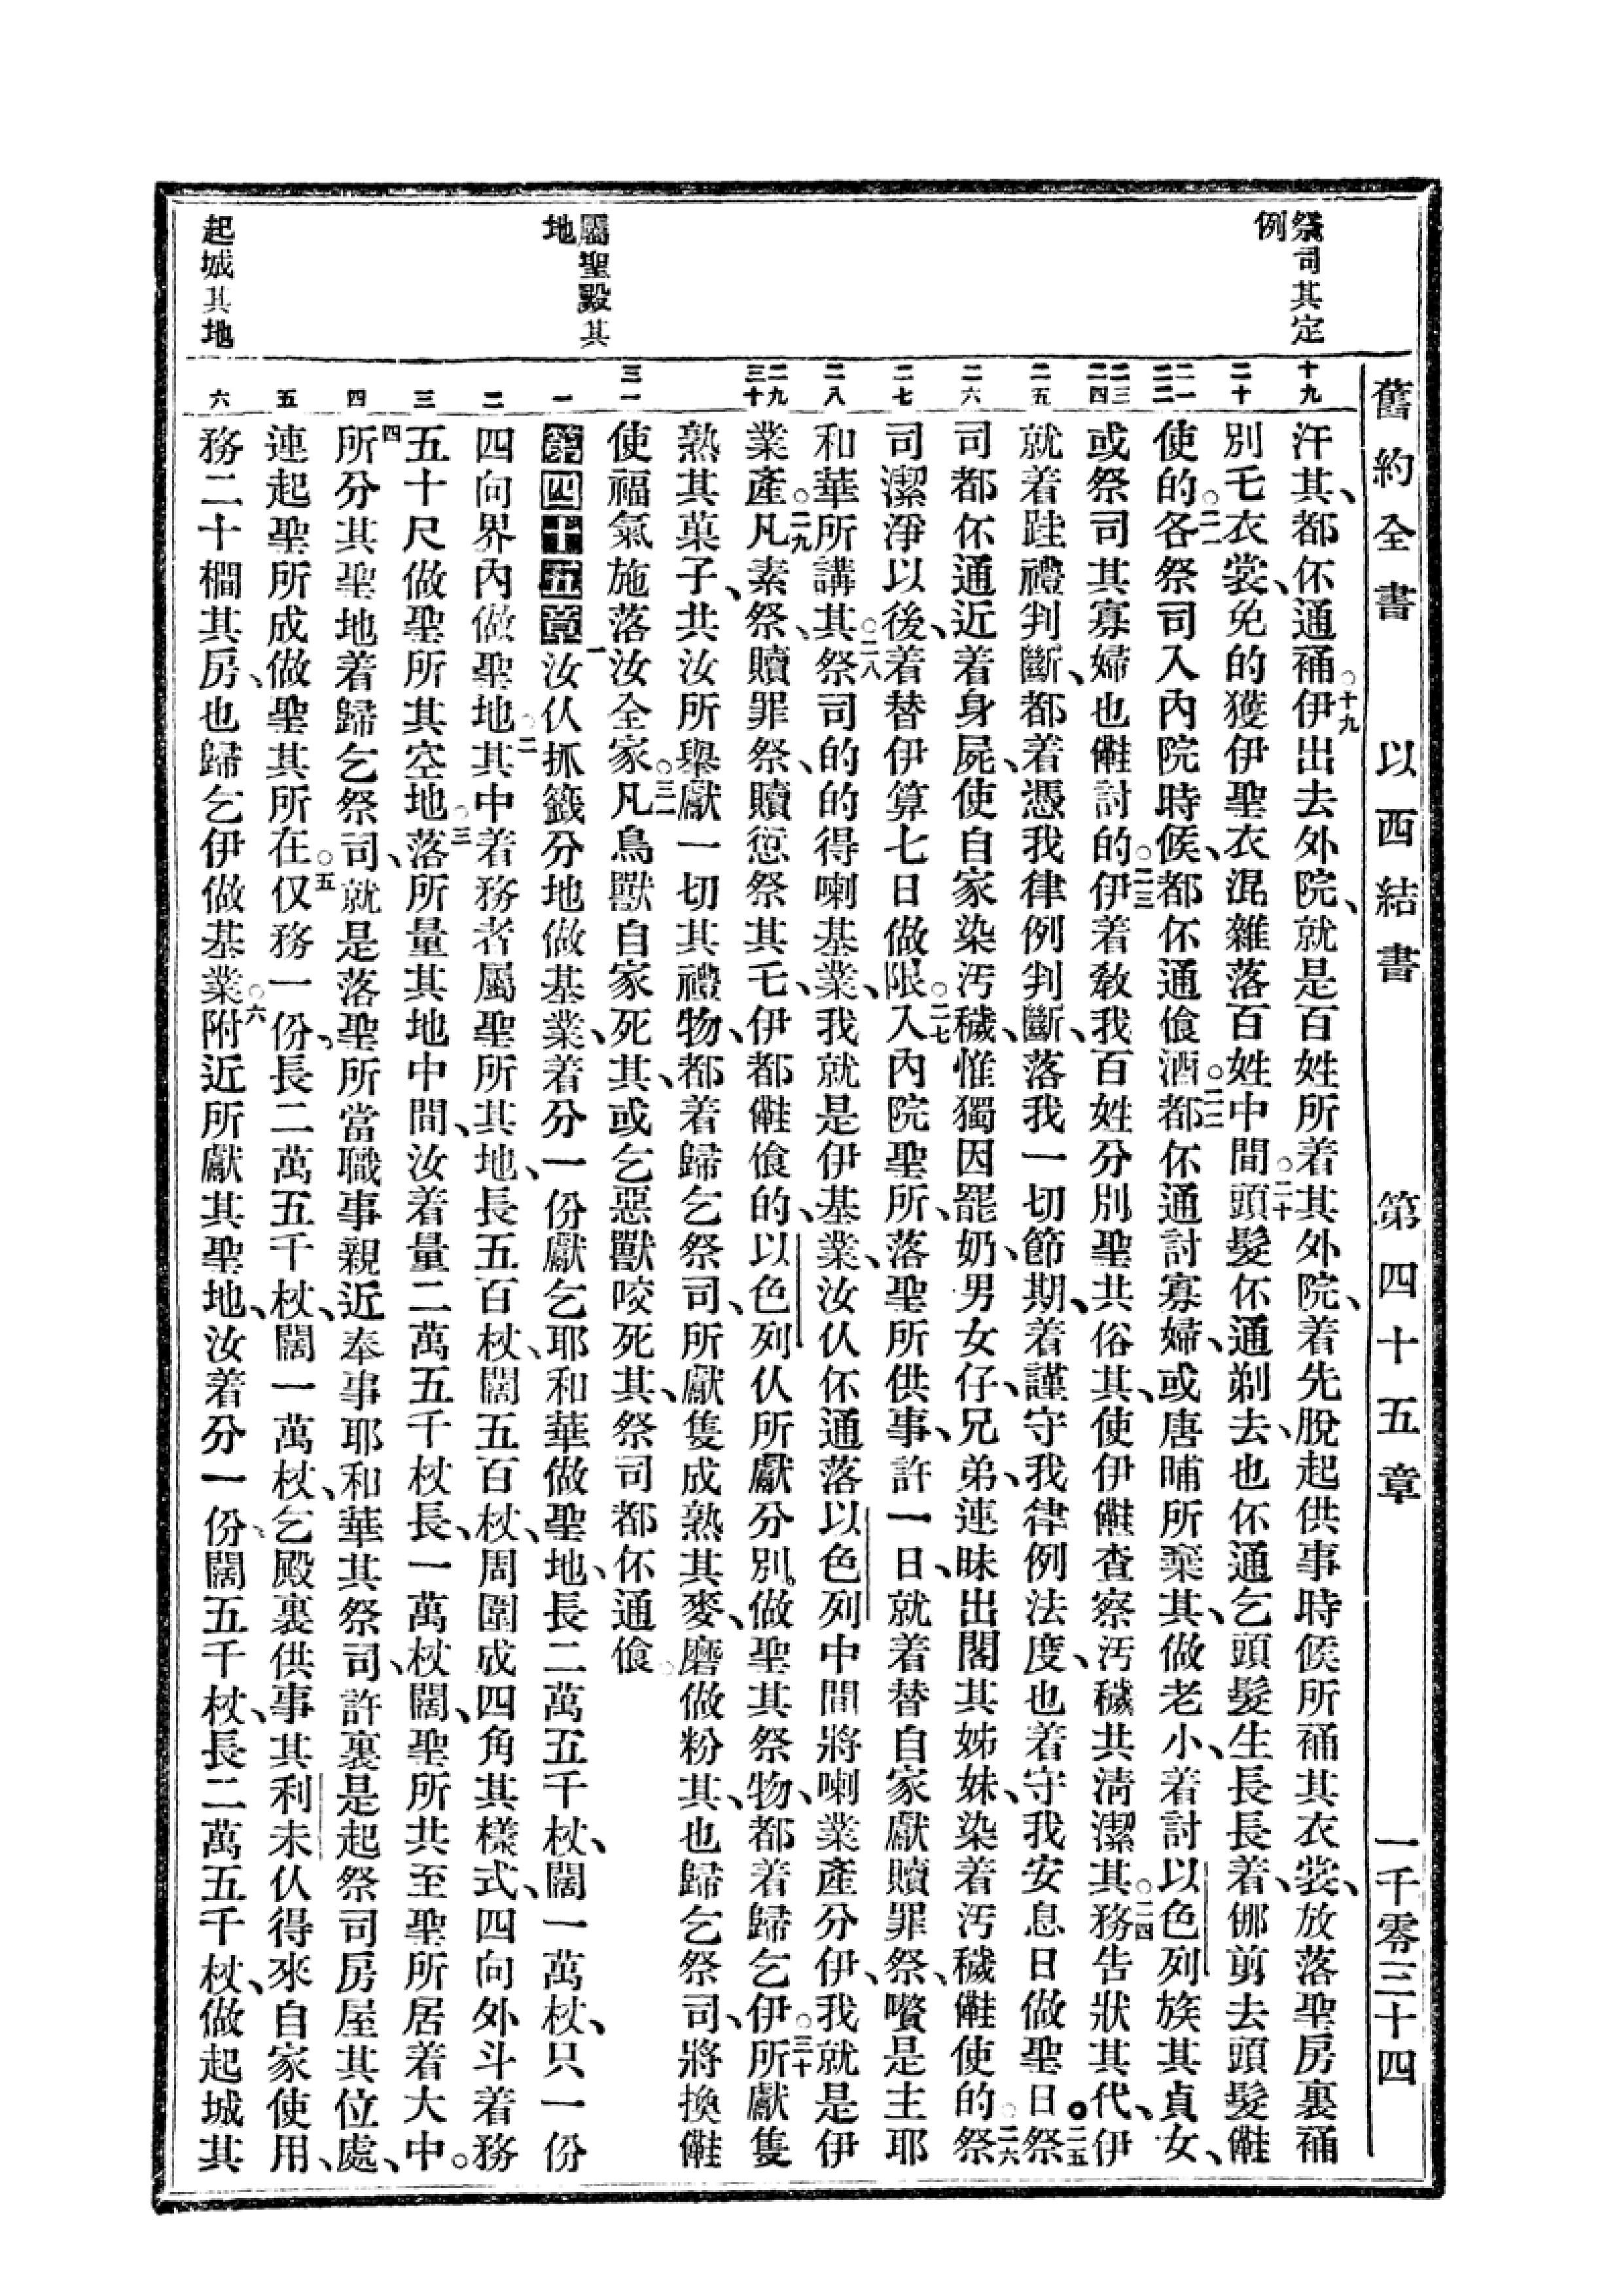 舊約全書　以西結書　第四十五章　一千零三十四
祭司其定
例
屬聖殿其
地
起城其地
十九
二十
二一
二二
二三
二四
二五
二六
二七
二八
二九
三十
三一
一
二
三
四
五
六
汗其、都伓通𧙕。十九伊出去外院、就是百姓所着其外院、着先脫起供事時候所𧙕其衣裳、放落聖房裏𧙕
別乇衣裳、免的獲伊聖衣混雜落百姓中間。二十頭髮伓通剃去、也伓通乞頭髮生長長着、㑚剪去頭髮㒕
使的。二一各祭司入內院時候、都伓通飡酒。二二都伓通討寡婦、或唐晡所棄其、做老小、着討以色列族其貞女、
或祭司其寡婦也㒕討的。二三伊着敎我百姓分別聖共俗其、使伊㒕查察汚穢共淸潔其。二四務吿狀其代、伊
就着跬禮判斷、都着憑我律例判斷、落我一切節期、着謹守我律例法度、也着守我安息日做聖日。二五祭
司都伓通近着身屍、使自家染汚穢、惟獨因罷奶、男女仔、兄弟、連昧出閣其姊妹、染着汚穢㒕使的。二六祭
司潔淨以後、着替伊算七日做限。二七入內院聖所、落聖所供事、許一日、就着替自家獻贖罪祭、嚽是主耶
和華所講其。二八祭司的的得喇基業、我就是伊基業、汝仈伓通落以色列中間將喇業產分伊、我就是伊
業產。二九凡素祭、贖罪祭、贖愆祭其乇、伊都㒕飡的、以色列仈所獻分別。做聖其祭物、都着歸乞伊。三十所獻隻
熟其菓子、共汝所舉獻一切其禮物、都着歸乞祭司、所獻隻成熟其麥、磨做粉其、也歸乞祭司、將換㒕
使福氣施落汝全家。三一凡鳥獸自家死其、或乞惡獸咬死其、祭司都伓通飡。
第四十五章一汝仈抓籤分地做基業、着分一份獻乞耶和華做聖地、長二萬五千杖、闊一萬杖、只一份
四向界內做聖地。二其中着務者屬聖所其地、長五百杖、闊五百杖、周圍成四角其樣式、四向外斗着務
五十尺做聖所其空地。三落所量其地中間、汝着量二萬五千杖長、一萬杖闊、聖所共至聖所居着大中。
四所分其聖地着歸乞祭司、就是落聖所當職事親近奉事耶和華其祭司、許裏是起祭司房屋其位處、
連起聖所成做聖其所在。五仅務一份、長二萬五千杖、闊一萬杖、乞殿裏供事其利未仈得來自家使用、
務二十櫩其房、也歸乞伊做基業。六附近所獻其聖地、汝着分一份、闊五千杖、長二萬五千杖、做起城其